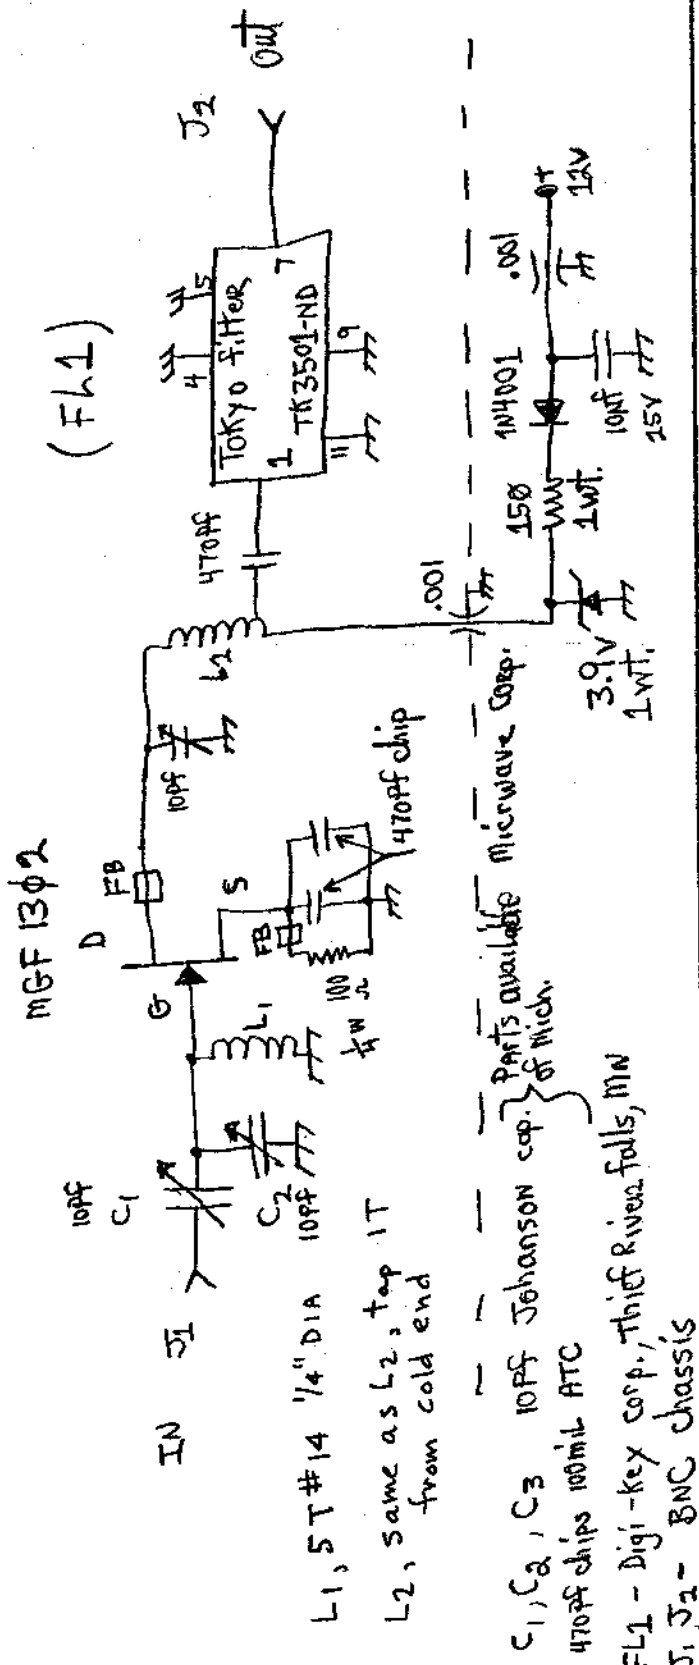 MGF 13φ2
(FL1)
IN
J1
10Pf
C1
C2
10Pf
G
D
S
L1
FB
FB
100
Ω
¼ W
470Pf chip
10Pf
L2
470Pf
Tokyo filter
TK3501-ND
1
4
5
7
11
9
J2
out
.001
3.9V
1wt.
150
1wt.
1N4001
10μf
25V
.001
+
12V
L1, 5T #14 1/4" DIA
L2, same as L2, tap 1T
from cold end
C1, C2, C3 10Pf Johanson cap.
470Pf chips 100mil ATC
Parts available Micrwave Corp.
of Mich.
FL1 - Digi-Key corp., Thief River falls, MN
J1 J2 - BNC chassis